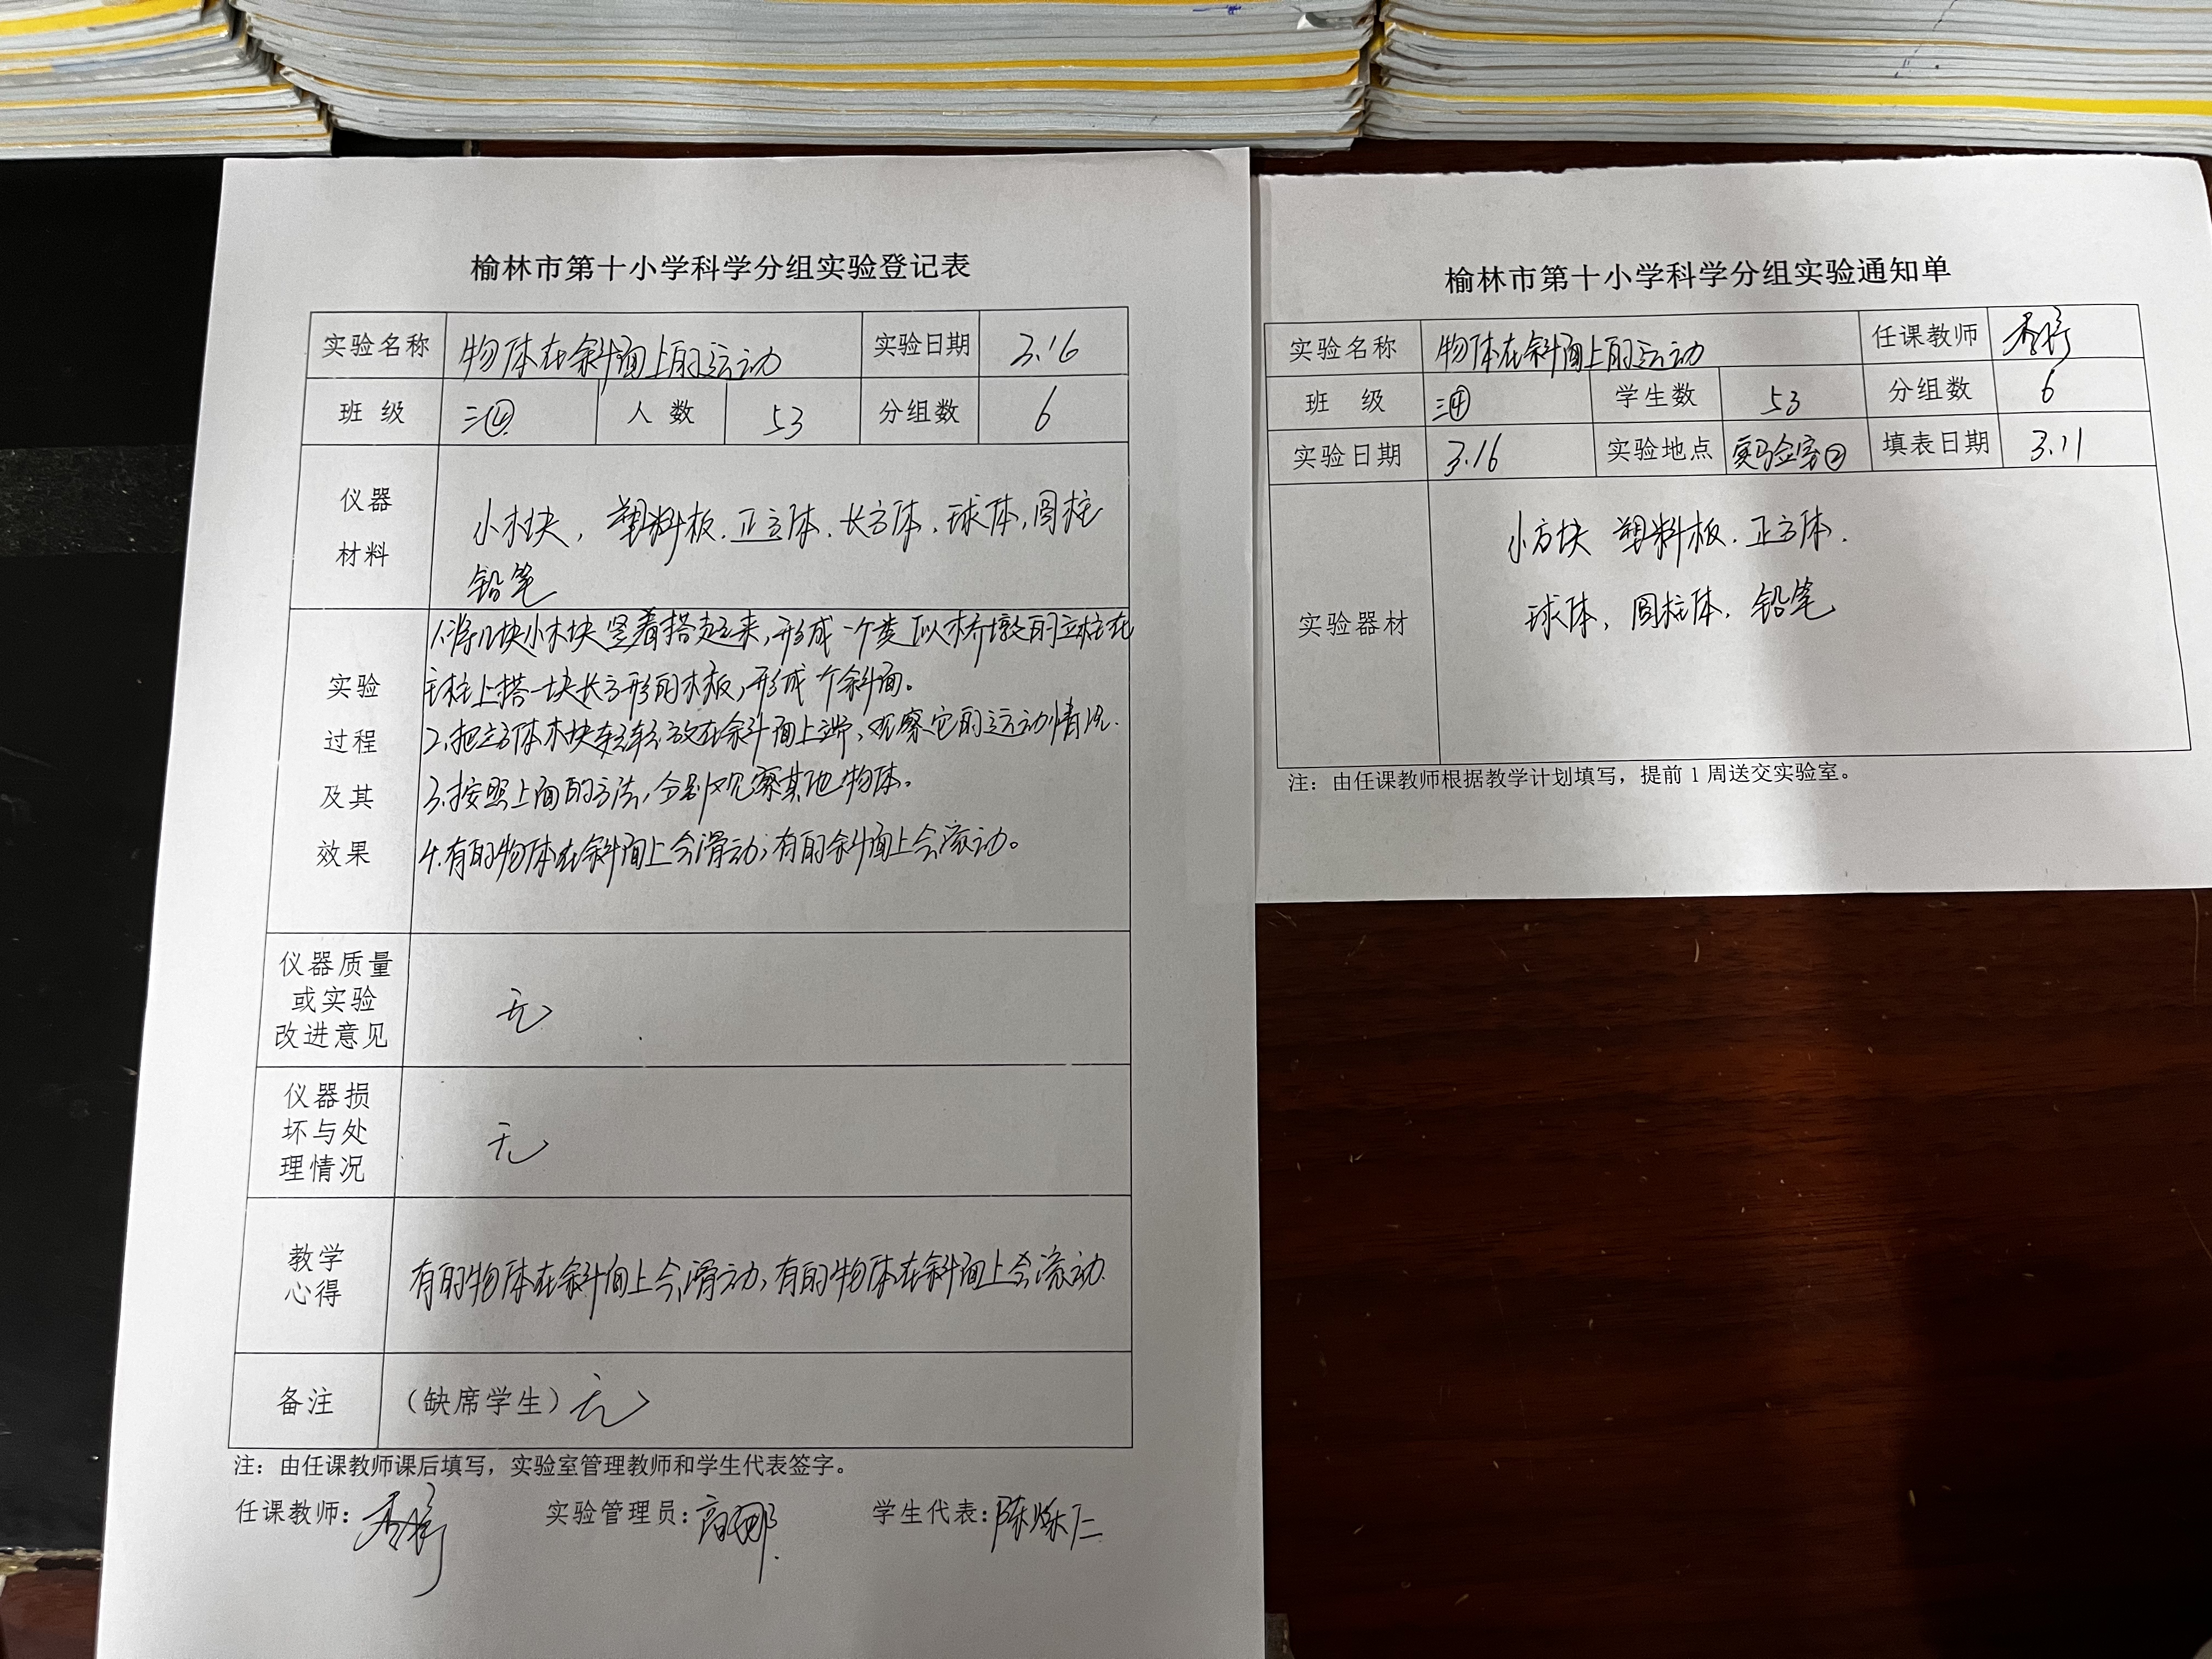 榆林市第十小学科学分组实验登记表
实验名称 物体在斜面上的运动 实验日期 3.16
班 级 三④ 人 数 53 分组数 6
仪器 材料
小木块，塑料板、正方体、长方体、球体，圆柱
铅笔
实验 过程 及其 效果
1.将几块小木块竖着搭起来，形成一个类似桥墩的立柱在
立柱上搭一块长方形的木板，形成一个斜面。
2.把立方体木块轻轻放在斜面上端，观察它的运动情况.
3.按照上面的方法，分别观察其他物体。
4.有的物体在斜面上会滑动；有的斜面上会滚动。
仪器质量
或实验
改进意见
无
仪器损
坏与处
理情况
无
教学
心得
有的物体在斜面上会滑动，有的物体在斜面上会滚动.
备注 （缺席学生）无
注：由任课教师课后填写，实验室管理教师和学生代表签字。
任课教师： 实验管理员：高娜 学生代表：
榆林市第十小学科学分组实验通知单
实验名称 物体在斜面上的运动 任课教师
班 级 三④ 学生数 53 分组数 6
实验日期 3.16 实验地点 实验室② 填表日期 3.11
实验器材
小方块 塑料板、正方体.
球体，圆柱体，铅笔
注：由任课教师根据教学计划填写，提前 1 周送交实验室。